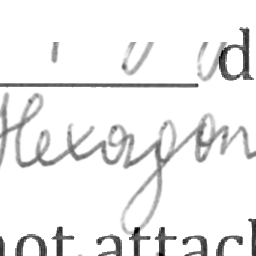 d
Hexagon
not attach